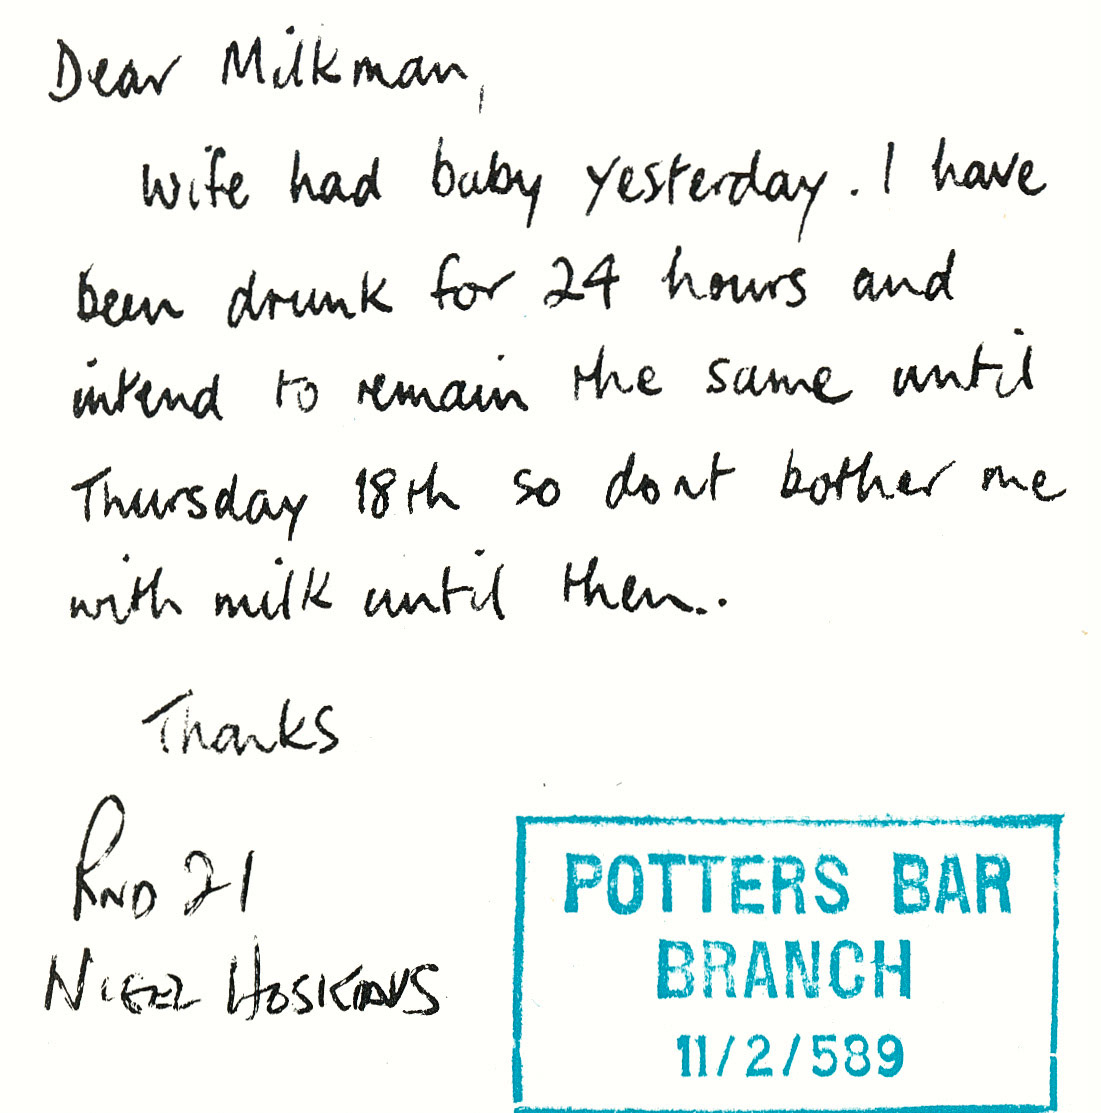 Dear Milkman,
Wife had baby yesterday. I have
been drunk for 24 hours and
intend to remain the same until
Thursday 18th so dont bother me
with milk until then..
Thanks
RND 21
NIGEL HOSKINS
POTTERS BAR
BRANCH
11/2/589